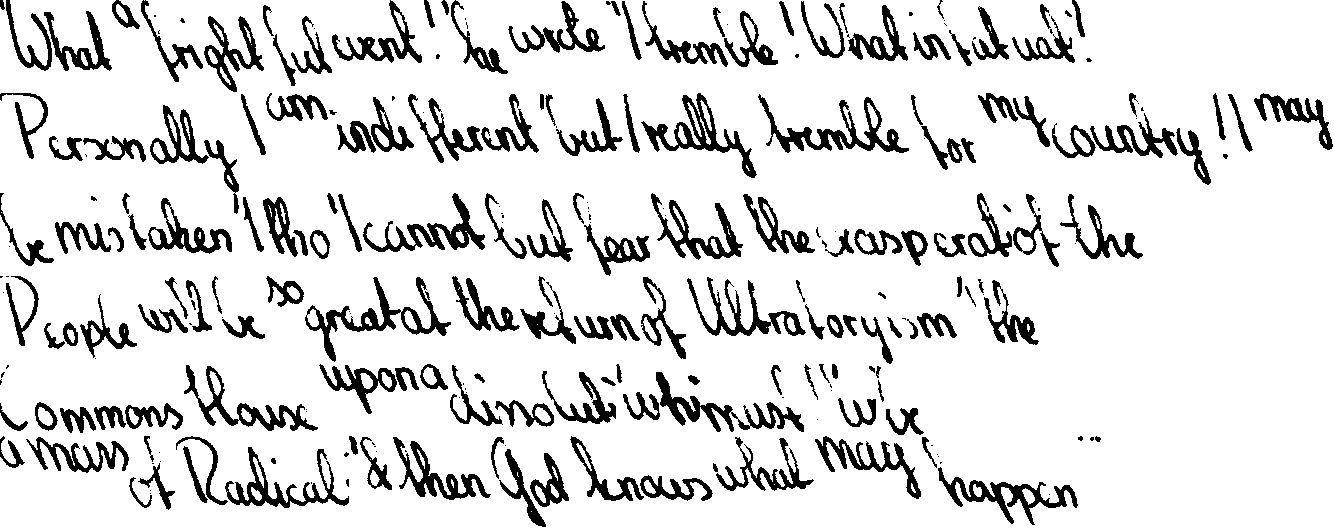 "What a frightful event!" he wrote "I tremble! What infatuat!
Personally I am indifferent "but I really tremble for my country! I may
be mistaken "tho "I cannot but fear that the exasperat of the
People will be so great at the return of Ultratoryism "the
Commons House upon a dissolut "whi must "" w'be
a mass of Radical "& then God knows what may happen ..."